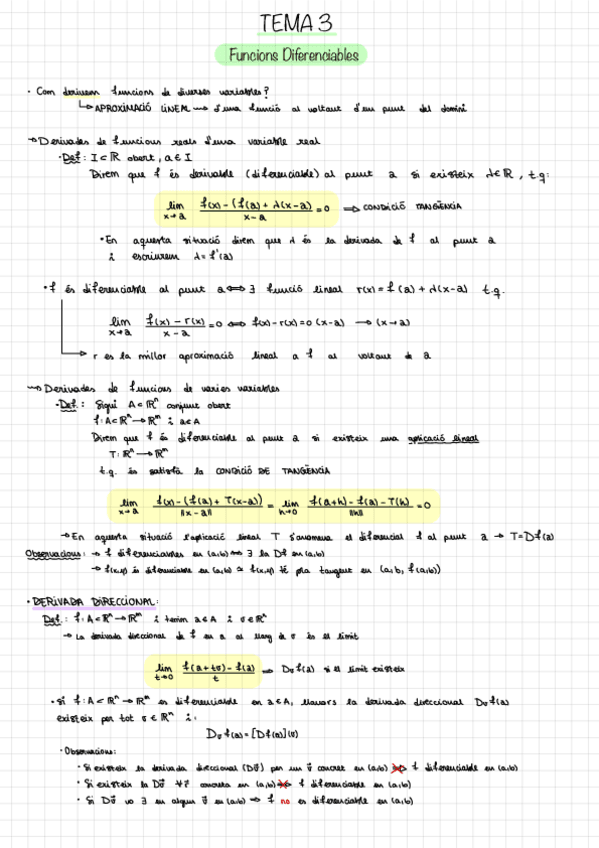 TEMA 3
Funcions Diferenciables
· Com derivem funcions de diverses variables?
↳ APROXIMACIÓ LINEAL ⟿ d'una funció al voltant d'un punt del domini
→ Derivades de funcions reals d'una variable real
· Def: I ⊂ ℝ obert, a ∈ I
Direm que f és derivable (diferenciable) al punt a si existeix λ ∈ ℝ, t.q:
lim x→a (f(x) - (f(a) + λ(x-a))) / (x-a) = 0 ⟹ CONDICIÓ TANGÈNCIA
· En aquesta situació direm que λ és la derivada de f al punt a
i escriurem λ = f'(a)
· f és diferenciable al punt a ⟺ ∃ funció lineal r(x) = f(a) + λ(x-a) t.q.
lim x→a (f(x) - r(x)) / (x-a) = 0 ⟺ f(x) - r(x) = o(x-a) → (x→a)
↳ r és la millor aproximació lineal a f al voltant de a
⟿ Derivades de funcions de varies variables
· Def.: Sigui A ⊂ ℝⁿ conjunt obert
f: A ⊂ ℝⁿ → ℝᵐ i a ∈ A
Direm que f és diferenciable al punt a si existeix una aplicació lineal
T: ℝⁿ → ℝᵐ
t.q. es satisfà la CONDICIÓ DE TANGÈNCIA
lim x→a (f(x) - (f(a) + T(x-a))) / ‖x-a‖ = lim h→0 (f(a+h) - f(a) - T(h)) / ‖h‖ = 0
→ En aquesta situació l'aplicació lineal T s'anomena el diferencial f al punt a → T = Df(a)
Observacions: → f diferenciables en (a,b) ⟺ ∃ la Df en (a,b)
→ f(x,y) és diferenciable en (a,b) ≃ f(x,y) té pla tangent en (a,b, f(a,b))
· DERIVADA DIRECCIONAL:
Def.: f: A ⊂ ℝⁿ → ℝᵐ i tenim a ∈ A i v ∈ ℝⁿ
→ La derivada direccional de f en a al llarg de v és el límit
lim t→0 (f(a+tv) - f(a)) / t ⟹ Dᵥf(a) si el límit existeix
· Si f: A ⊂ ℝⁿ → ℝᵐ es diferenciable en a ∈ A, llavors la derivada direccional Dᵥf(a)
existeix per tot v ∈ ℝⁿ i:
Dᵥf(a) = [Df(a)](v)
· Observacions:
· Si existeix la derivada direccional (Dv⃗) per un v⃗ concret en (a,b) ⇏ f diferenciable en (a,b)
· Si existeix la Dv⃗ ∀v⃗ concreta en (a,b) ⇏ f diferenciable en (a,b)
· Si Dv⃗ no ∃ en algun v⃗ en (a,b) ⟹ f no es diferenciable en (a,b)